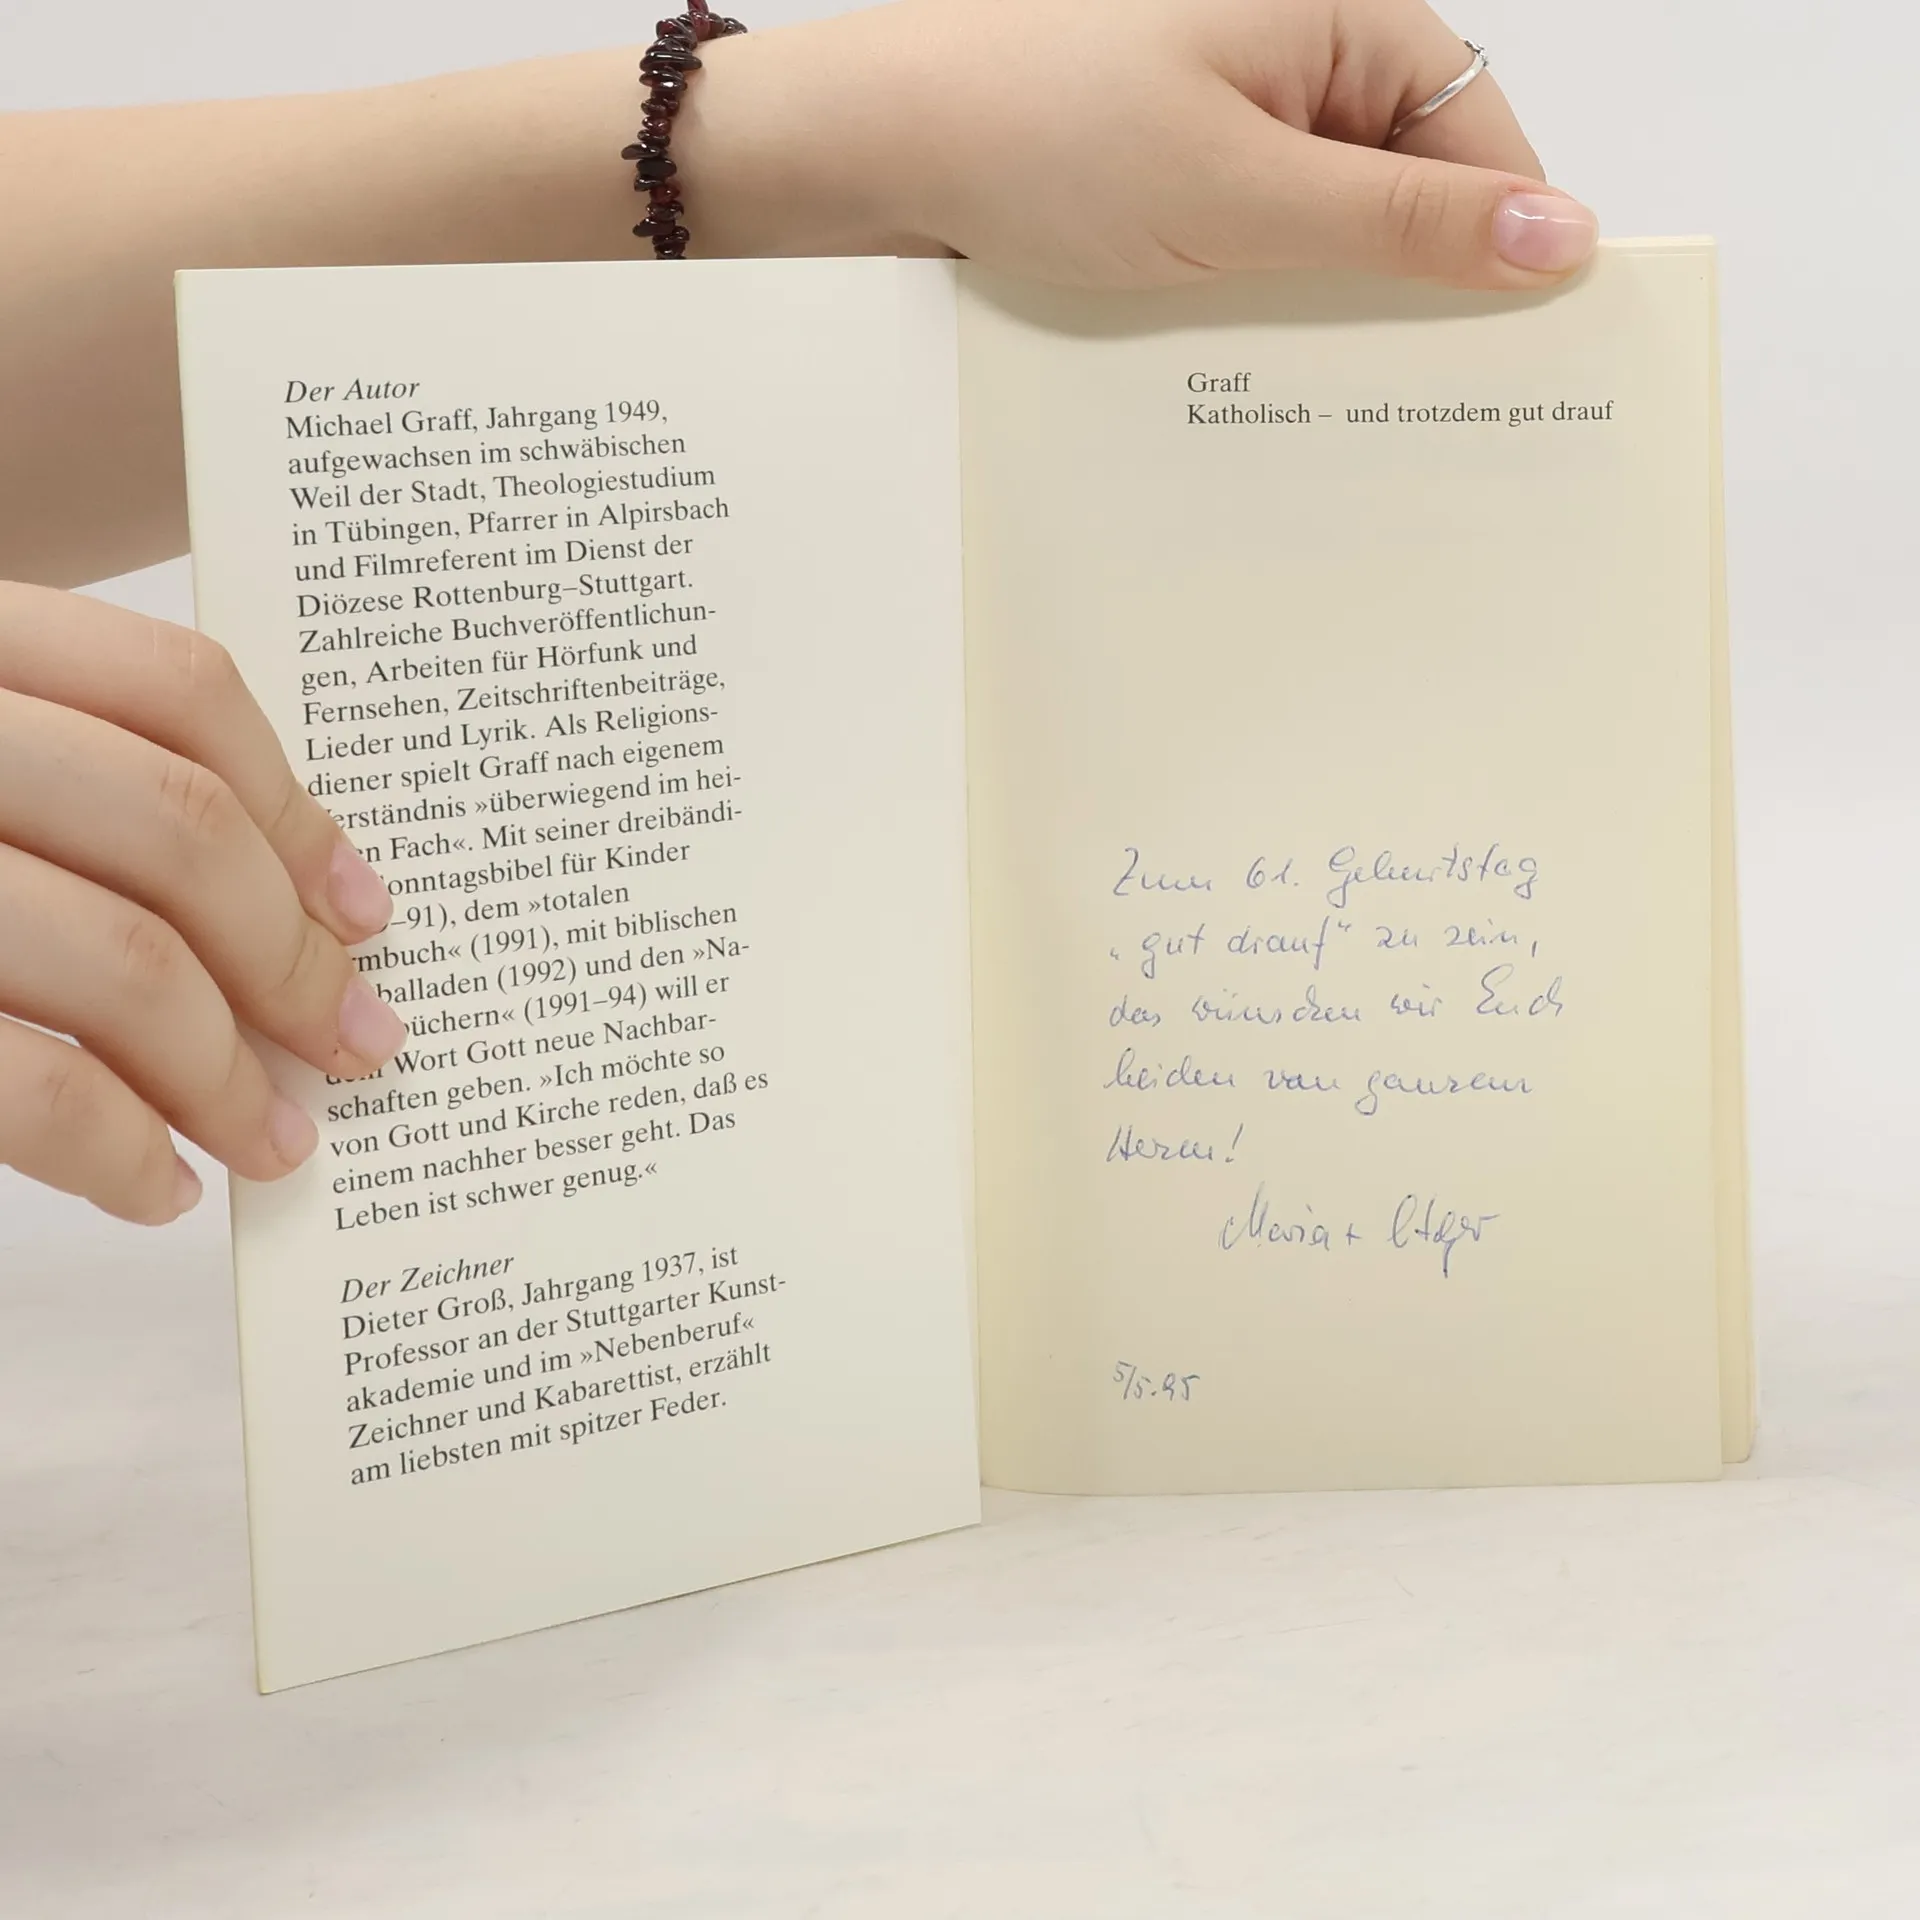 Der Autor
Michael Graff, Jahrgang 1949,
aufgewachsen im schwäbischen
Weil der Stadt, Theologiestudium
in Tübingen, Pfarrer in Alpirsbach
und Filmreferent im Dienst der
Diözese Rottenburg–Stuttgart.
Zahlreiche Buchveröffentlichun-
gen, Arbeiten für Hörfunk und
Fernsehen, Zeitschriftenbeiträge,
Lieder und Lyrik. Als Religions-
diener spielt Graff nach eigenem
erständnis »überwiegend im hei-
n Fach«. Mit seiner dreibändi-
onntagsbibel für Kinder
–91), dem »totalen
mbuch« (1991), mit biblischen
balladen (1992) und den »Na-
büchern« (1991–94) will er
Wort Gott neue Nachbar-
schaften geben. »Ich möchte so
von Gott und Kirche reden, daß es
einem nachher besser geht. Das
Leben ist schwer genug.«
Der Zeichner
Dieter Groß, Jahrgang 1937, ist
Professor an der Stuttgarter Kunst-
akademie und im »Nebenberuf«
Zeichner und Kabarettist, erzählt
am liebsten mit spitzer Feder.
Graff
Katholisch – und trotzdem gut drauf
Zum 61. Geburtstag
„gut drauf“ zu sein,
das wünschen wir Euch
beiden von ganzem
Herzen!
Maria +
5/5.95